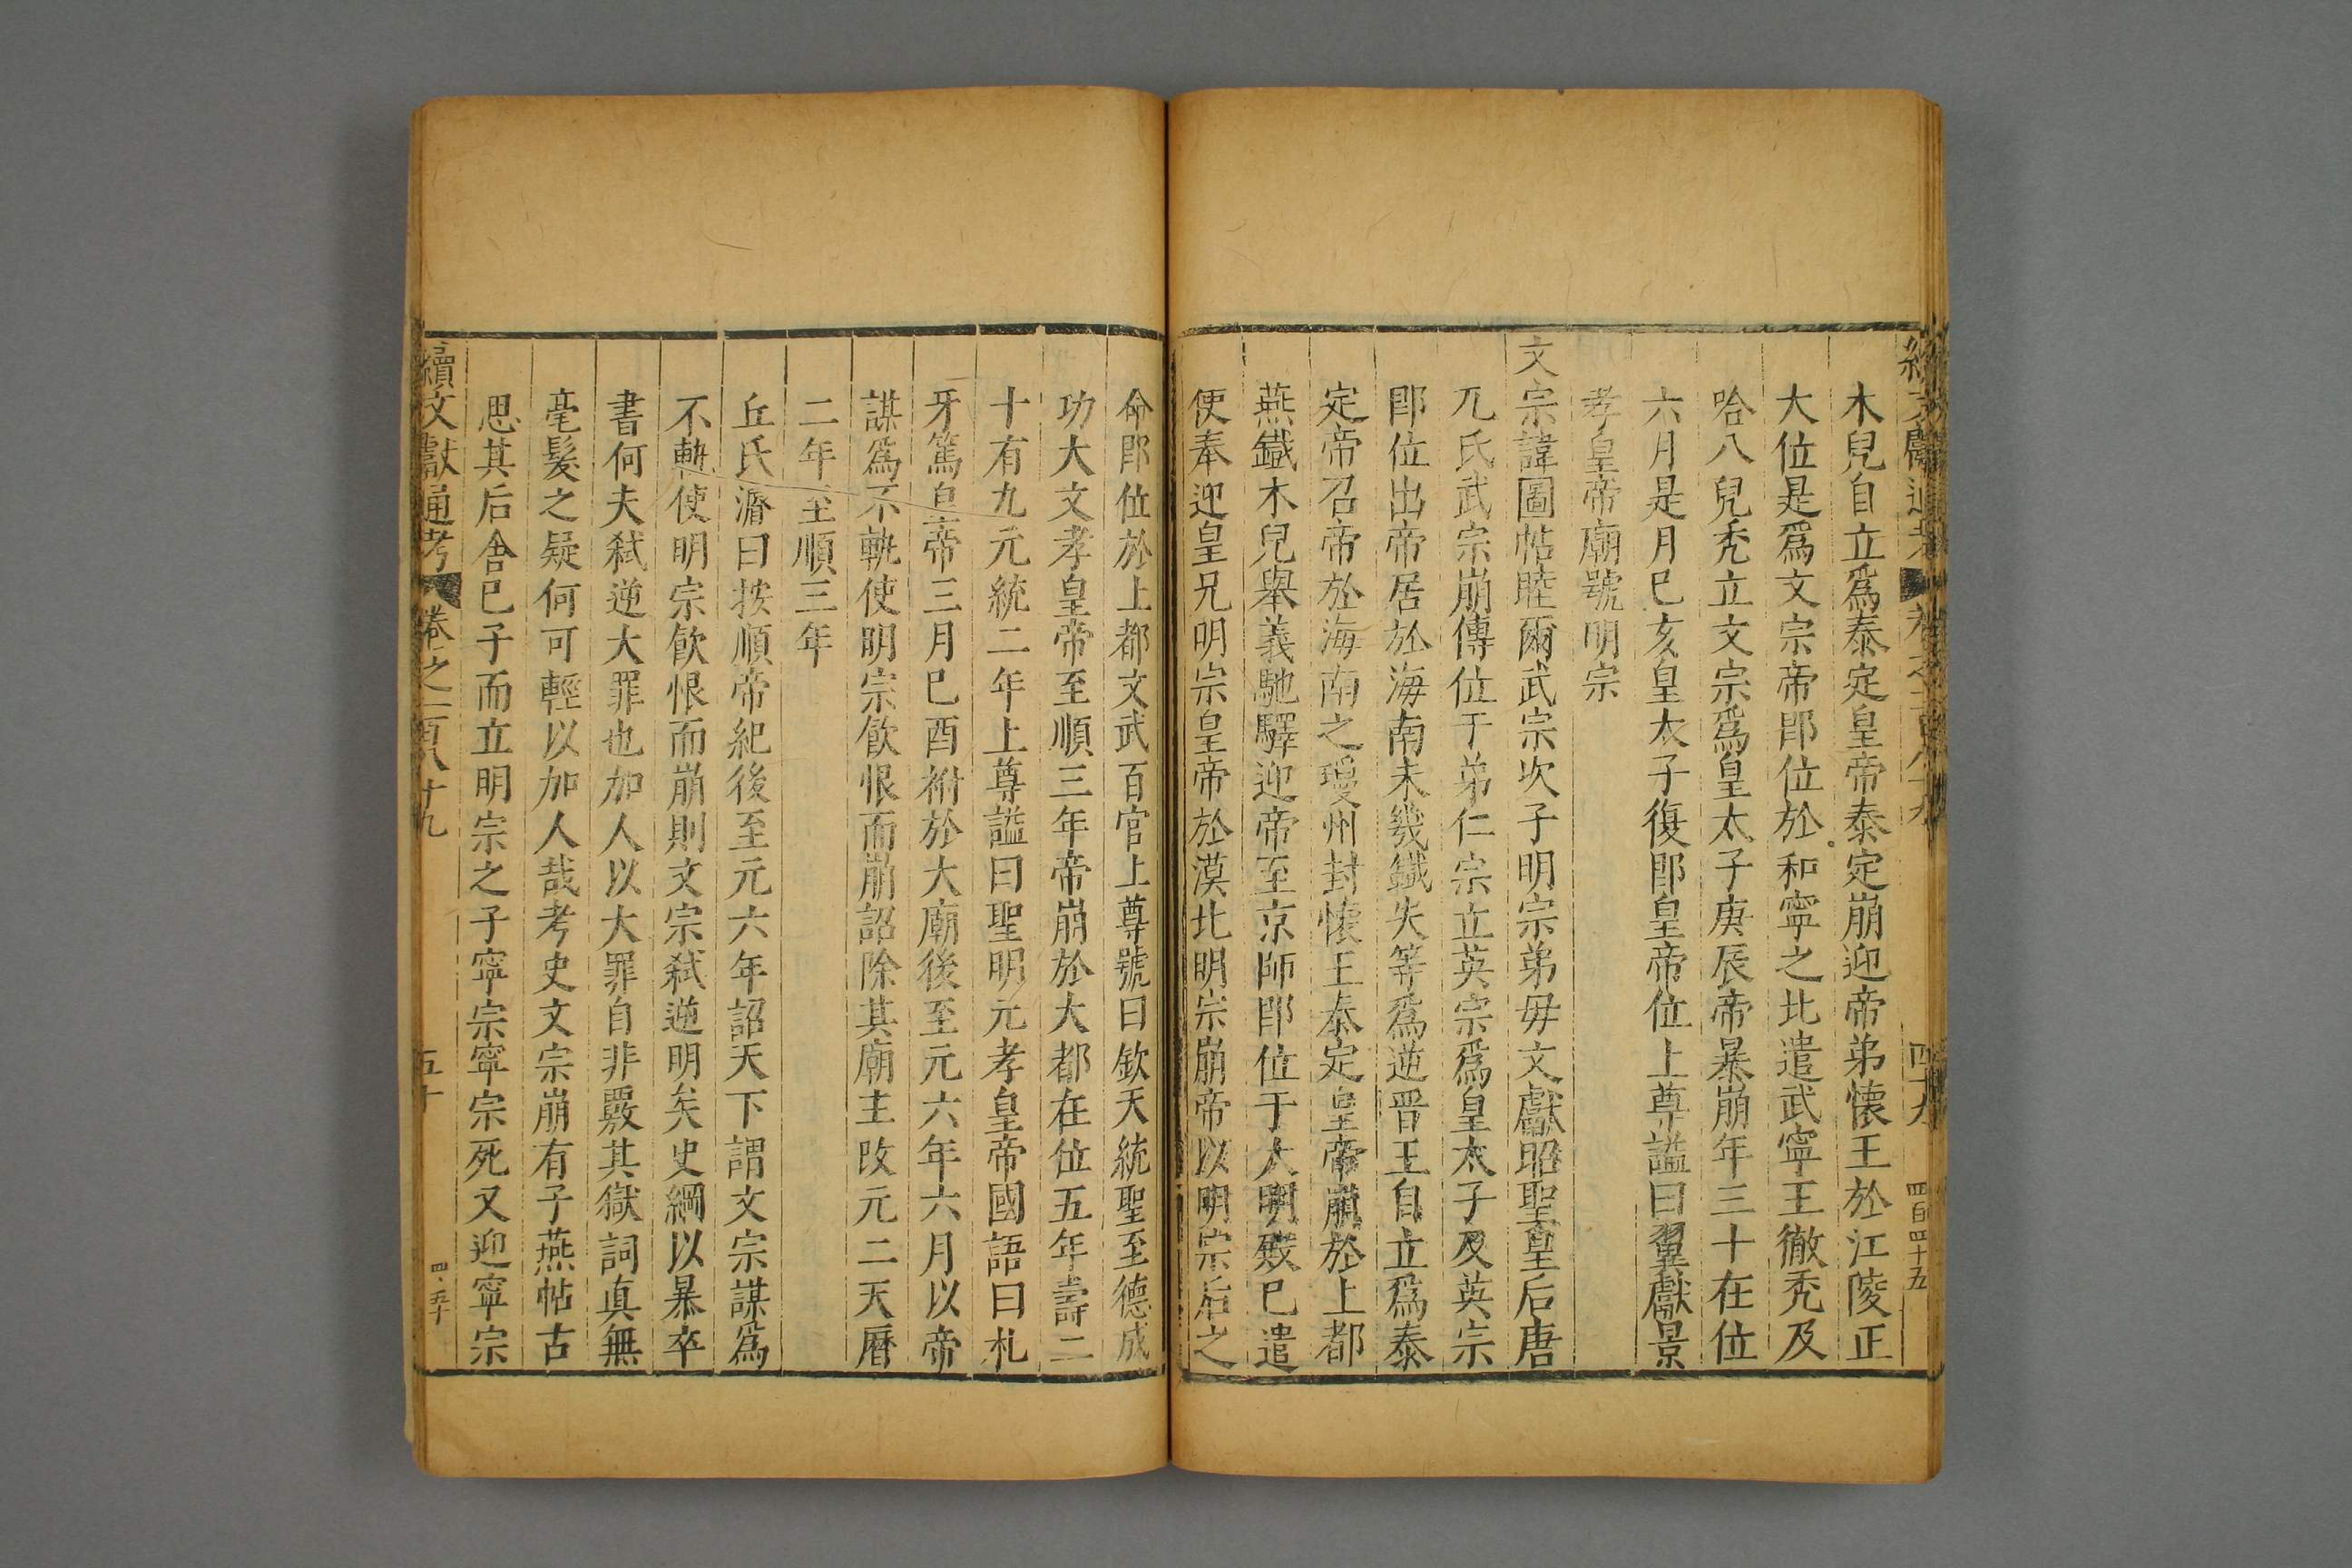 續文獻通考 卷之一百八十九 四十九 四百四十五
木兒自立爲泰定皇帝泰定崩迎帝弟懐王於江陵正
大位是爲文宗帝即位於和寧之北遣武寧王徹禿及
哈八兒禿立文宗爲皇太子庚辰帝暴崩年三十在位
六月是月巳亥皇太子復即皇帝位上尊謚曰翼獻景
孝皇帝廟號明宗
文宗諱圖帖睦爾武宗次子明宗弟毋文獻昭聖皇后唐
兀氏武宗崩傳位于弟仁宗立英宗爲皇太子及英宗
即位出帝居於海南未幾鐵失等爲逆晋王自立爲泰
定帝召帝於海南之瓊州封懷王泰定皇帝崩於上都
燕鐵木兒舉義馳驛迎帝至京師即位于大明殿巳遣
使奉迎皇兄明宗皇帝於漠北明宗崩帝以明宗后之
命即位於上都文武百官上尊號曰欽天統聖至德成
功大文孝皇帝至順三年帝崩於大都在位五年壽二
十有九元統二年上尊謚曰聖明元孝皇帝國語曰札
牙篤皇帝三月巳酉祔於大廟後至元六年六月以帝
謀爲不軌使明宗飲恨而崩詔除其廟主改元二天曆
二年至順三年
丘氏濬曰按順帝紀後至元六年詔天下謂文宗謀爲
不軌使明宗飲恨而崩則文宗弑逆明矣史綱以暴卒
書何夫弑逆大罪也加人以大罪自非覈其獄詞真無
毫髮之疑何可輕以加人哉考史文宗崩有子燕帖古
思其后舍巳子而立明宗之子寧宗寧宗死又迎寧宗
續文獻通考 卷之一百八十九 五十